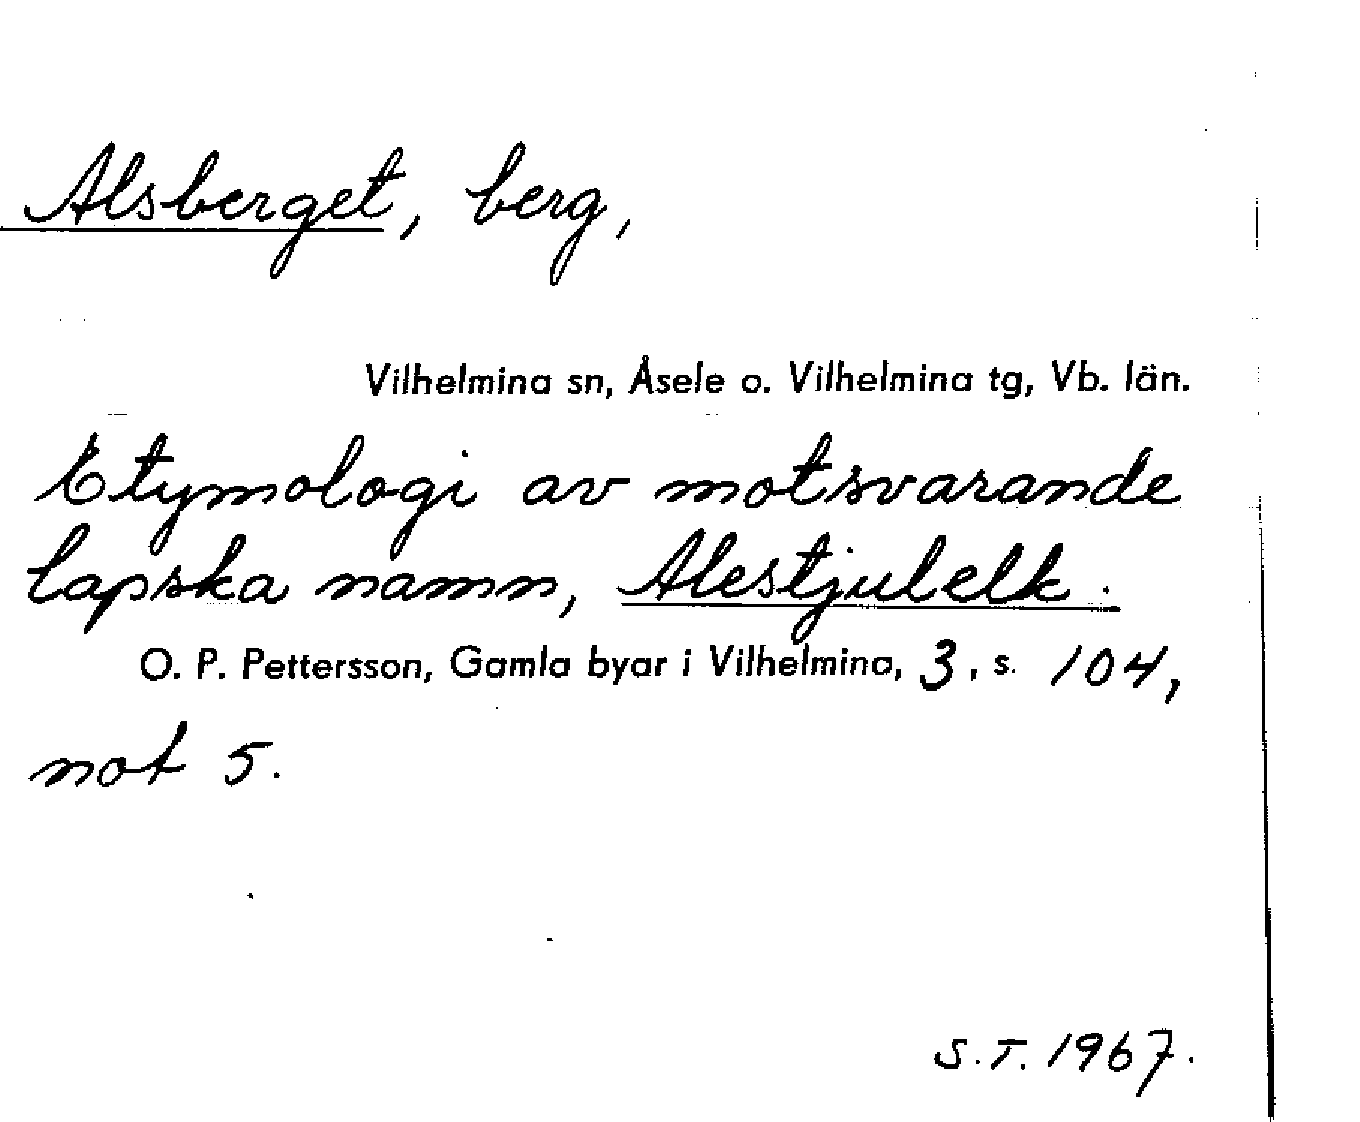 Alsberget, berg,
Vilhelmina sn, Åsele o. Vilhelmina tg, Vb. län.
Etymologi av motsvarande
lapska namn, Alestjulelk.
O. P. Pettersson, Gamla byar i Vilhelmina, 3, s. 104,
not 5.
S.T. 1967.